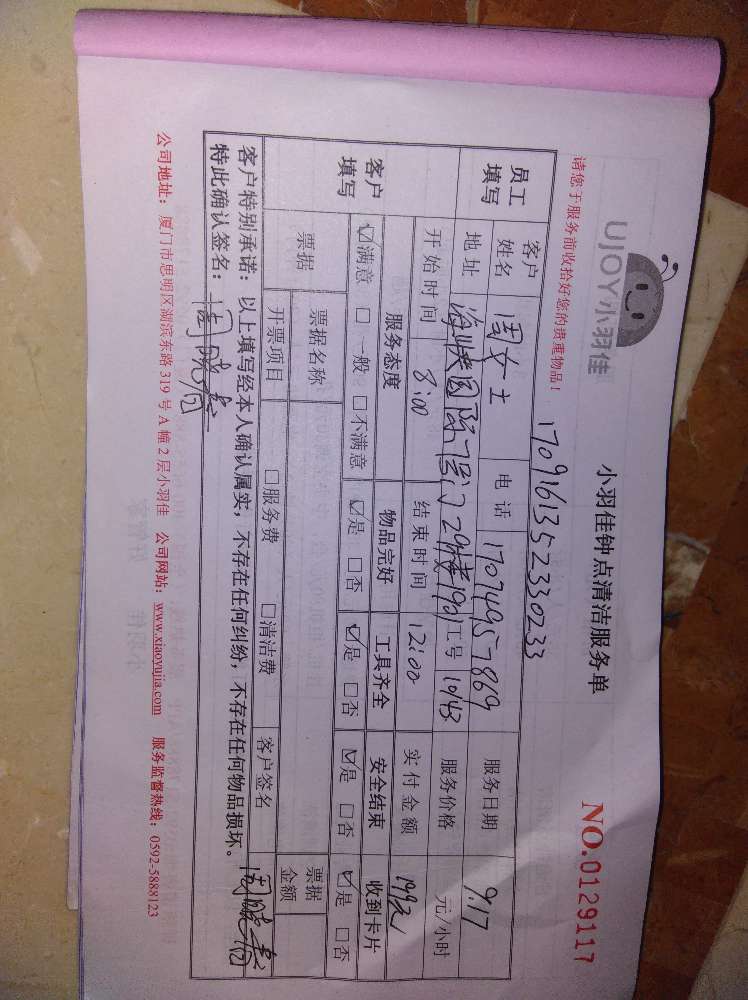 UJOY小羽佳
小羽佳钟点清洁服务单
NO.0129117
请您于服务前收拾好您的贵重物品！
1709161352330233
员工填写
客户姓名 周女士 电话 17074957869 服务日期 9.17
地址 海峡国际 29楼1901 工号 1043 服务价格 元/小时
开始时间 8:00 结束时间 12:00 实付金额 199元
客户填写
服务态度 物品完好 工具齐全 安全结束 收到卡片
☑满意 □一般 □不满意 ☑是 □否 ☑是 □否 ☑是 □否 ☑是 □否
票据 票据名称 票据金额
开票项目 □服务费 □清洁费 客户签名
客户特别承诺：以上填写经本人确认属实，不存在任何纠纷，不存在任何物品损坏。
特此确认签名：
公司地址：厦门市思明区湖滨东路 319 号 A 幢 2 层小羽佳 公司网站：www.xiaoyujia.com 服务监督热线：0592-5888123